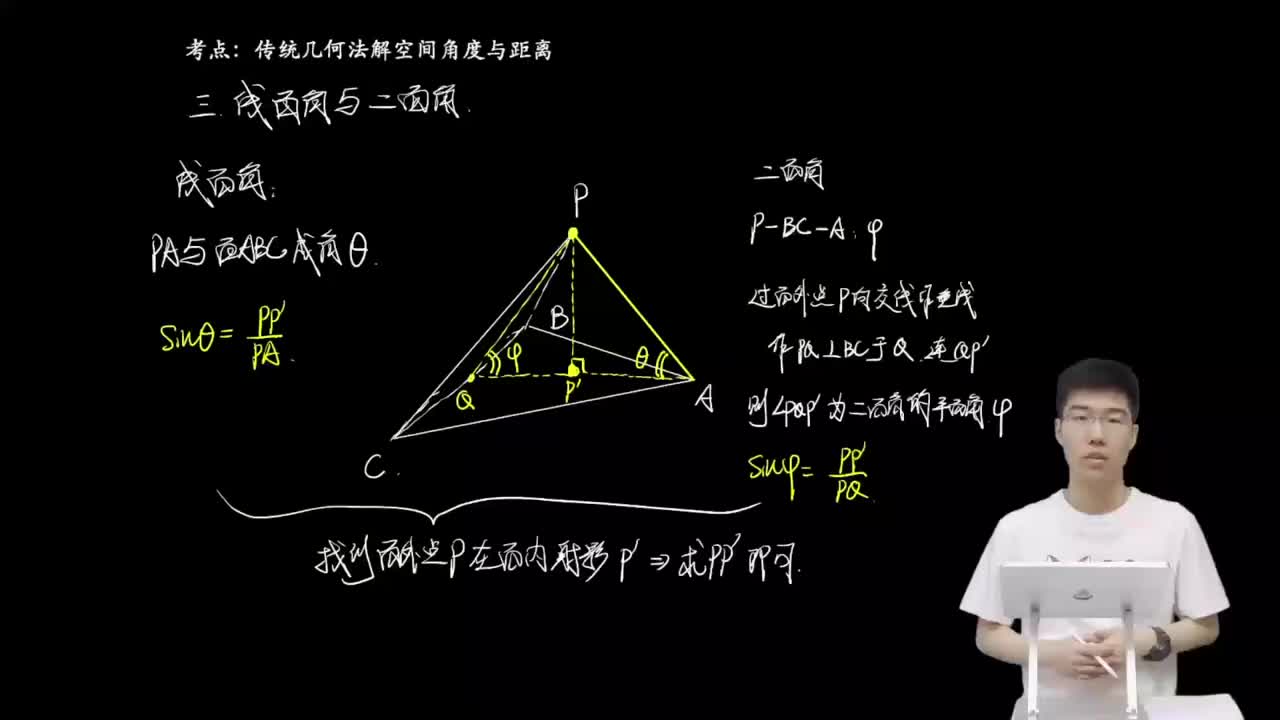 考点：传统几何法解空间角度与距离
三.线面角与二面角.
线面角：
PA与面ABC成角θ.
sinθ=PP'/PA.
P
B
φ
θ
Q
P'
A
C.
二面角
P-BC-A：φ
过面外点P向交线作垂线
作PQ⊥BC于Q.连QP'
则∠PQP'为二面角的平面角.φ
sinφ=PP'/PQ.
找到面外点P在面内射影P'⇒求PP'即可.